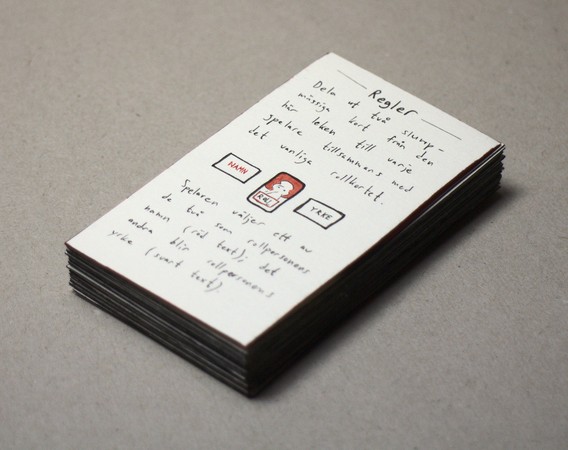 Regler
Dela ut två slump-
mässiga kort från den
här leken till varje
spelare tillsammans med
det vanliga rollkortet.
NAMN
ROLL
YRKE
Spelaren väljer ett av
de två som rollpersonens
namn (röd text); det
andra blir rollpersonens
yrke (svart text).